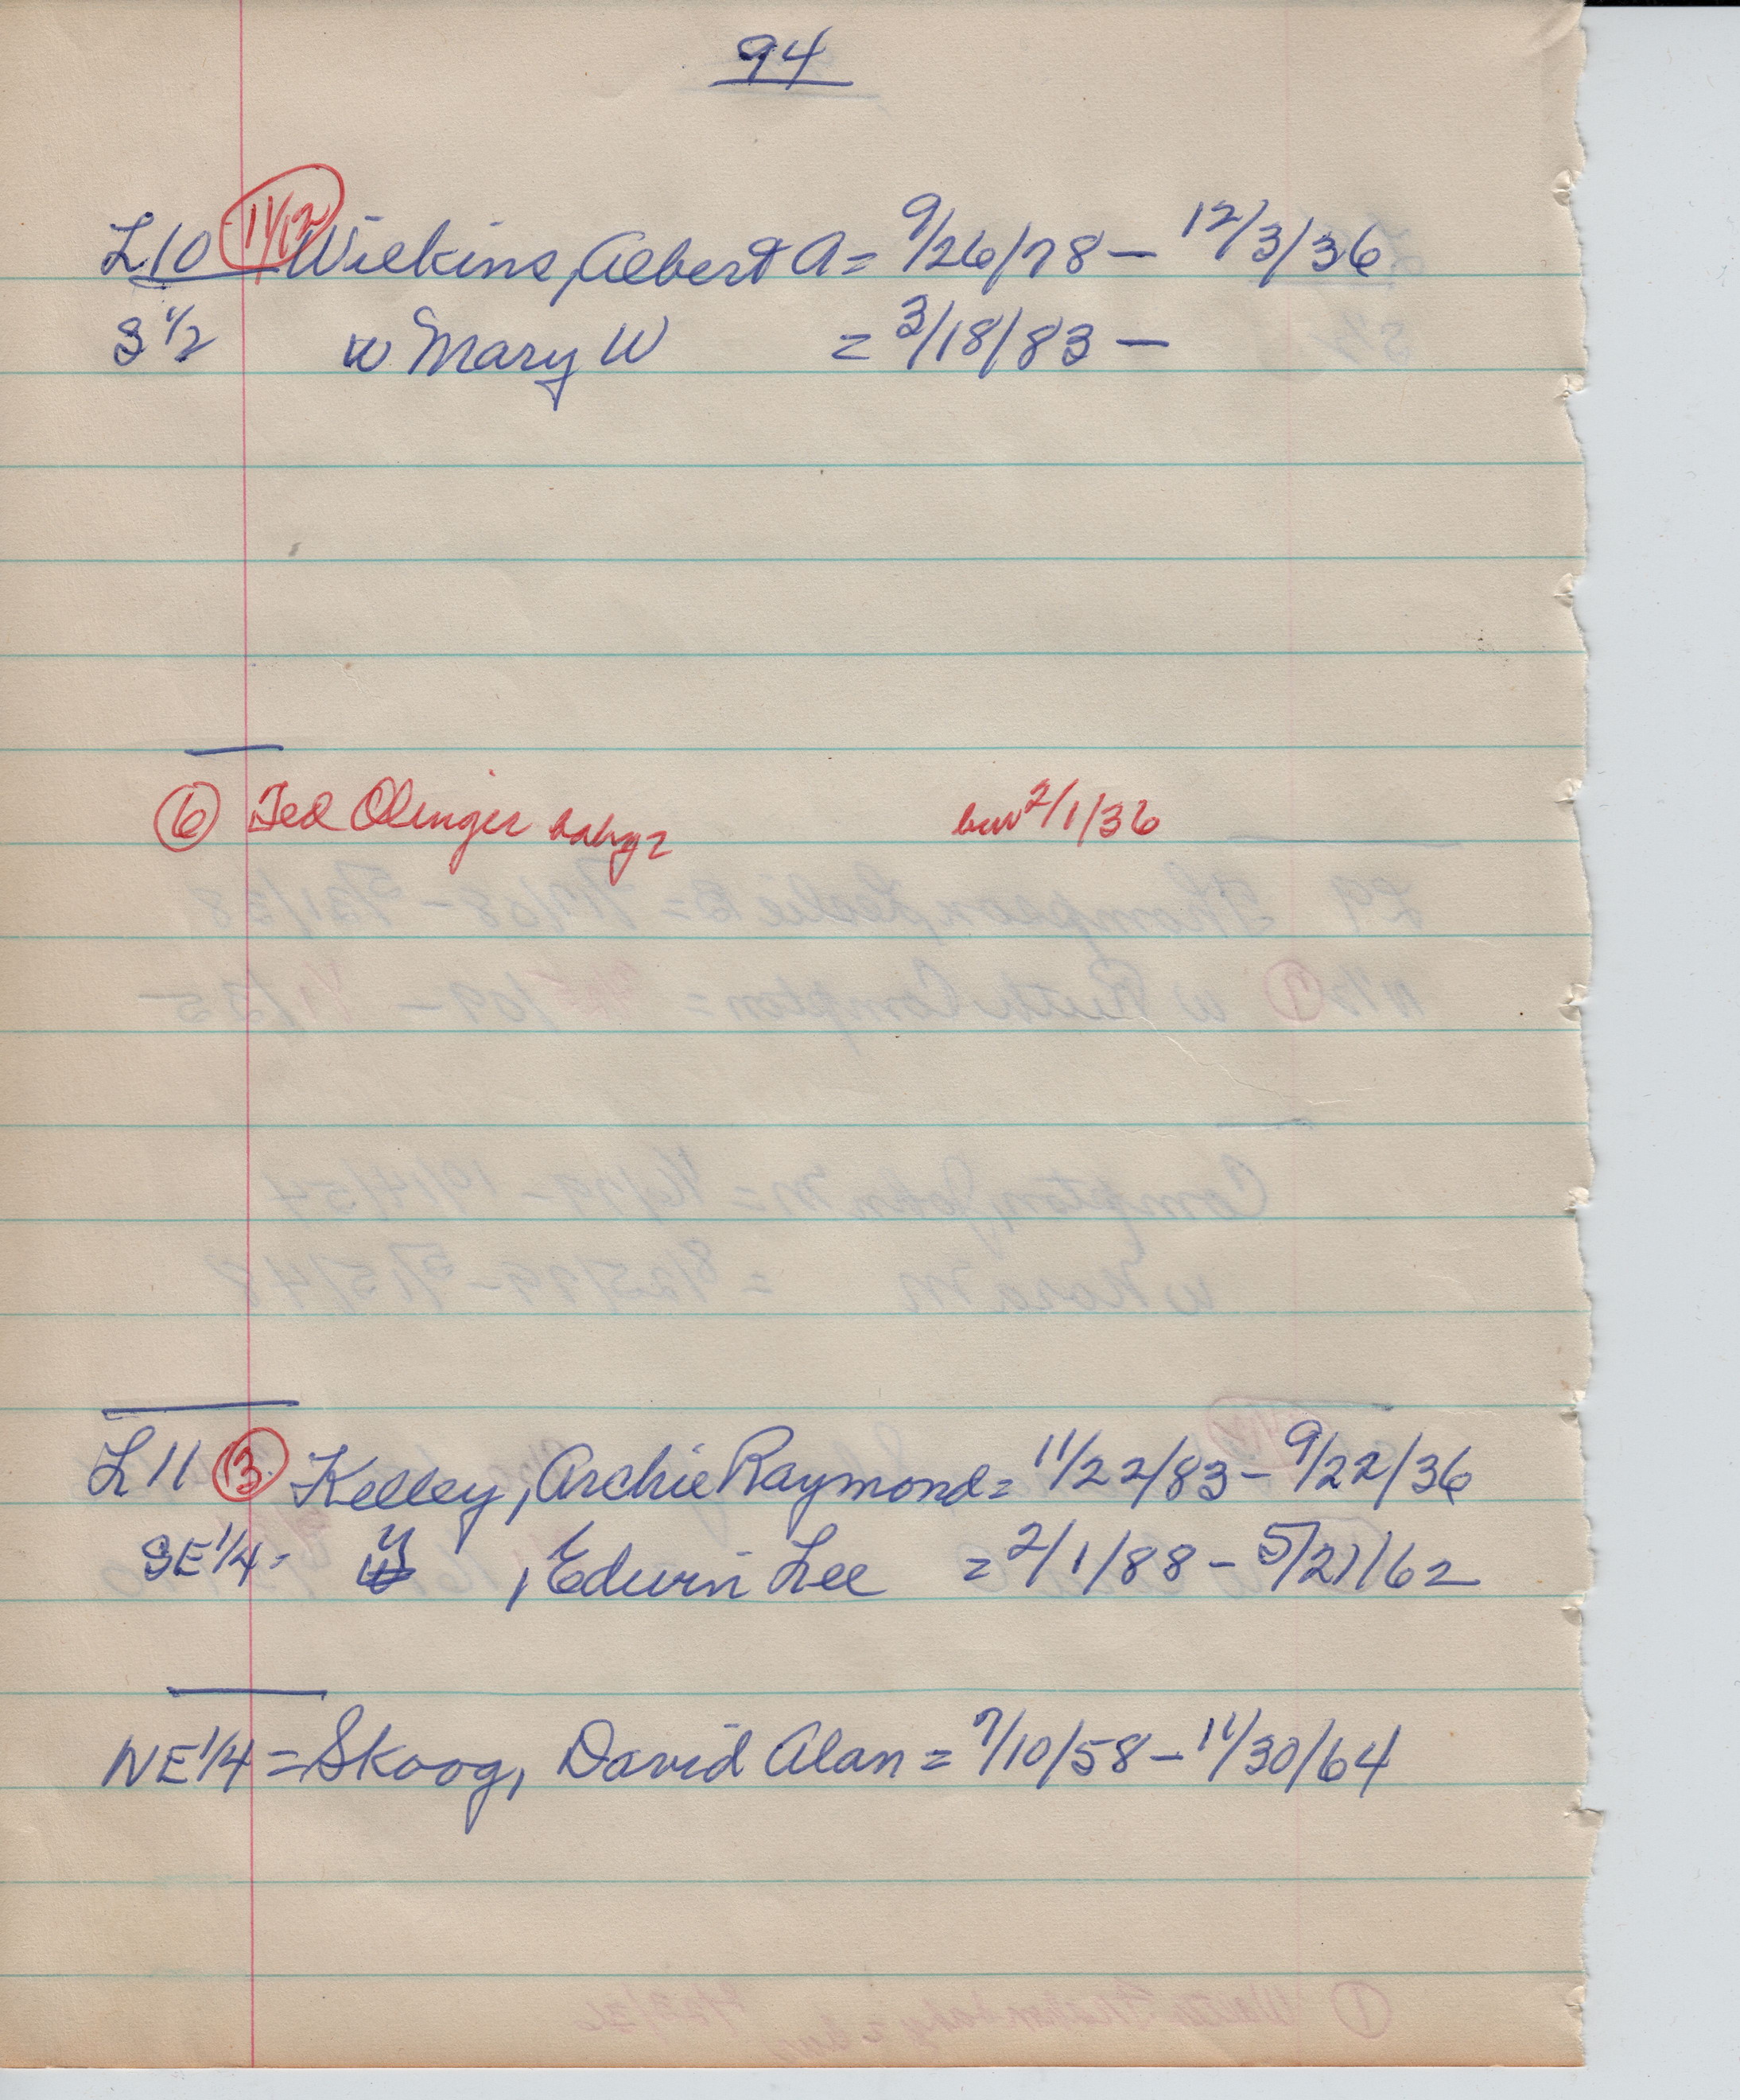 94
L10 11/12 Wilkins, Albert A = 9/26/78 – 12/3/36
S 1/2 w Mary W = 3/18/83 –
6 Ted Olinger baby = bur 2/1/36
L11 3 Kelley, Archie Raymond = 11/22/83 – 9/22/36
SE 1/4 - y , Edwin Lee = 2/1/88 – 5/27/62
NE 1/4 = Skoog, David Alan = 7/10/58 – 11/30/64